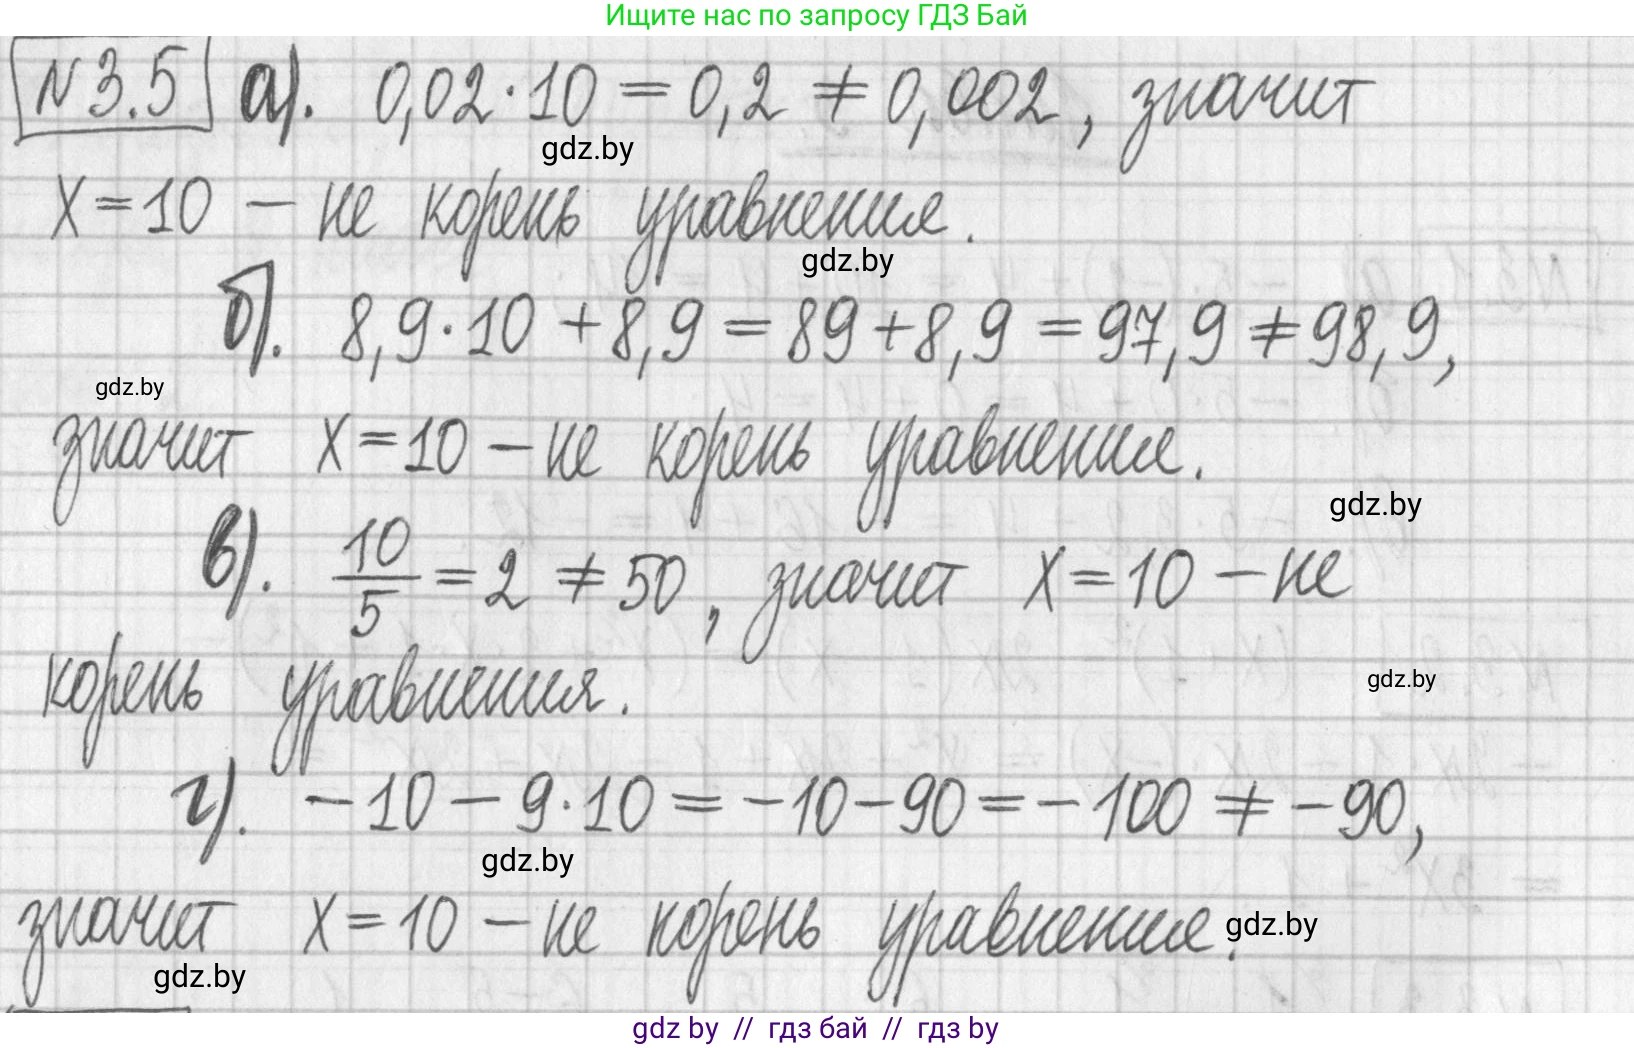 Ищите нас по запросу ГДЗ Бай
N 3.5 а). 0,02·10 = 0,2 ≠ 0,002, значит
gdz.by
x=10 – не корень уравнения.
gdz.by
б). 8,9·10 + 8,9 = 89 + 8,9 = 97,9 ≠ 98,9,
gdz.by
значит x=10 – не корень уравнения.
gdz.by
в). 10/5 = 2 ≠ 50, значит x=10 – не
gdz.by
корень уравнения.
г). –10 – 9·10 = –10–90 = –100 ≠ –90,
gdz.by
значит x=10 – не корень уравнения.
gdz.by
gdz.by
gdz by // гдз бай // гдз by